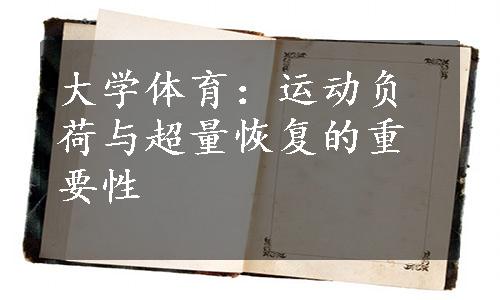 大学体育：运动负
荷与超量恢复的重
要性